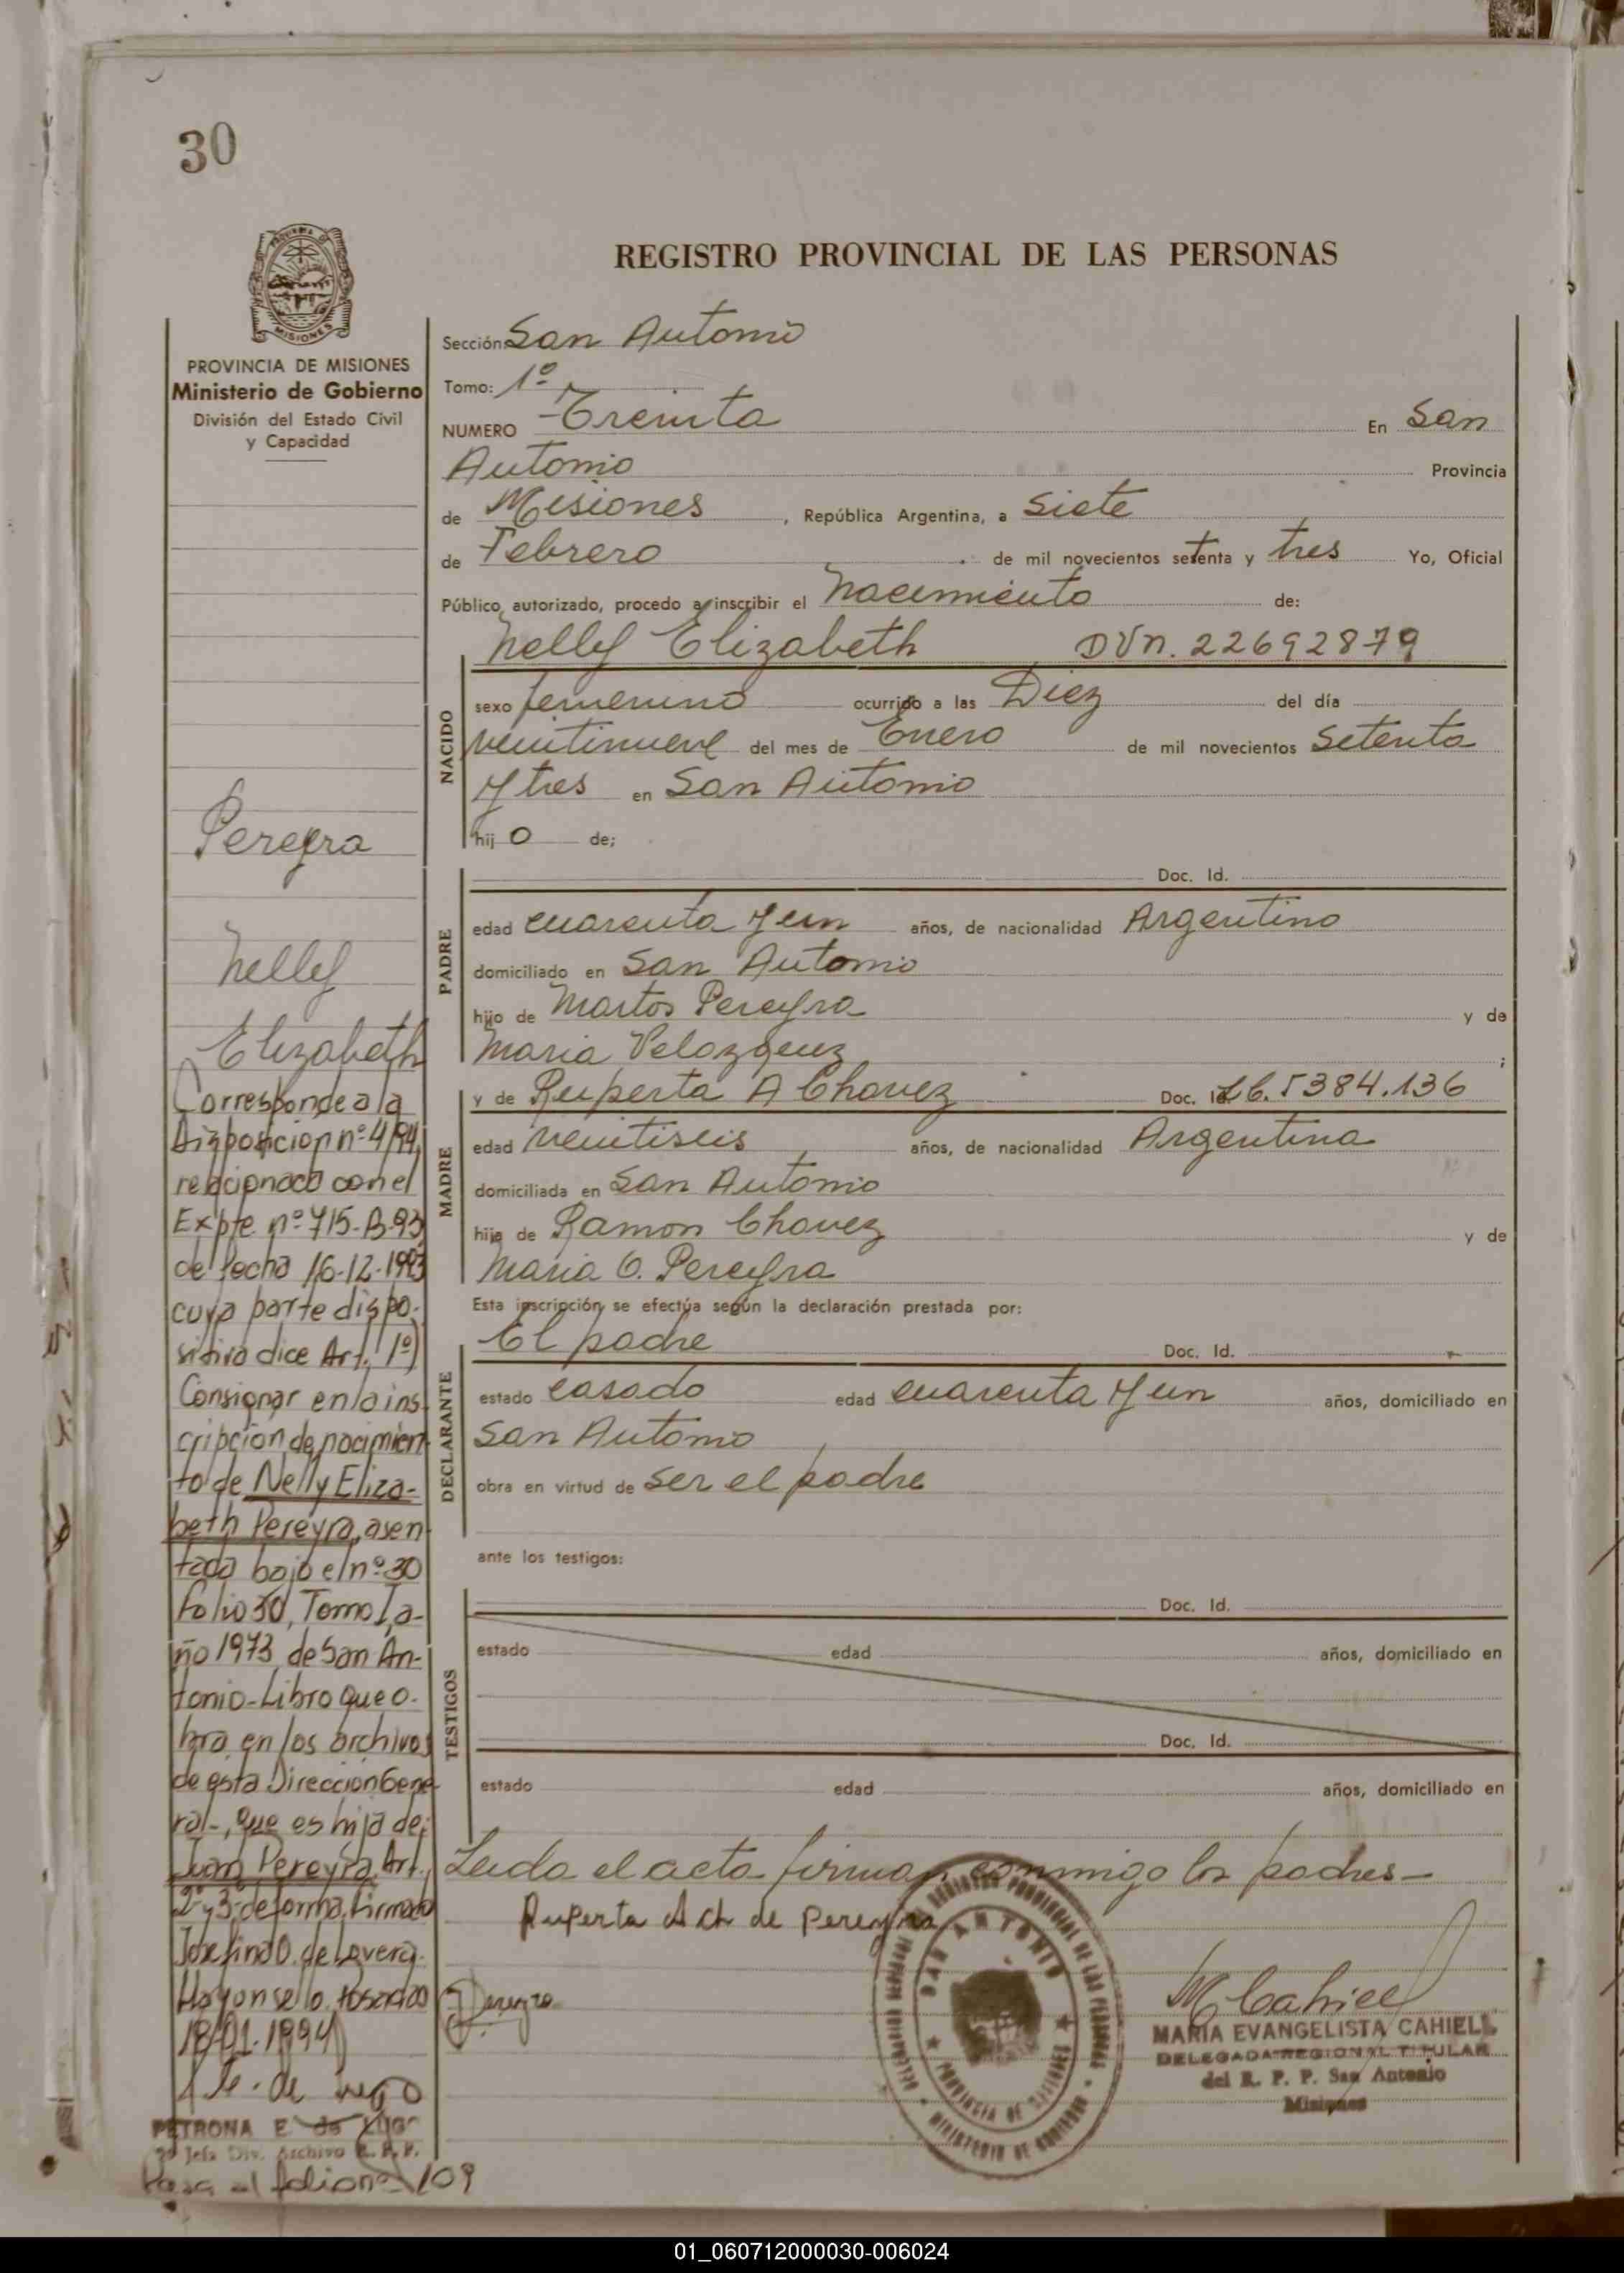 30
REGISTRO PROVINCIAL DE LAS PERSONAS
MISIONES
PROVINCIA DE MISIONES
Ministerio de Gobierno
División del Estado Civil
y Capacidad
Pereyra
Nelly
Elizabeth
Corresponde a la
Disposicion nº 4/94,
relacionado con el
Expte nº 715-B-93
de fecha 16-12-1993
cuya parte dispo-
sitiva dice Art. 1º)
Consignar en la ins
cripción de nacimien
to de Nelly Eliza-
beth Pereyra, asen
tada bajo el nº 30
folio 30, Tomo I, a-
ño 1973, de San An-
tonio-Libro que o-
bra en los archivos
de esta Dirección Gene
ral-, que es hija de:
Juan Pereyra, Art.
2º y 3º de forma. Firmado
Josefina O. de Lovera.
Hay un sello Posadas
18-01-1994
PETRONA E. de LUGO
Jefa Div. Archivo R. P. P.
Pasa al folio nº 109
Sección: San Antonio
Tomo: 1º
NUMERO Treinta En San
Antonio Provincia
de Misiones, República Argentina, a Siete
de Febrero de mil novecientos setenta y tres Yo, Oficial
Público autorizado, procedo a inscribir el Nacimiento de:
Nelly Elizabeth DNI. 22692879
NACIDO
sexo femenino ocurrido a las Diez del día
veintinueve del mes de Enero de mil novecientos Setenta
y tres en San Antonio
hij o de;
PADRE
Doc. Id.
edad cuarenta y un años, de nacionalidad Argentino
domiciliado en San Antonio
hijo de Martos Pereyra y de
Maria Velozquez ;
MADRE
y de Ruperta A Chavez Doc. Id. L6.5384.136
edad veintiseis años, de nacionalidad Argentina
domiciliada en San Antonio
hija de Ramon Chavez y de
Maria O. Pereyra
Esta inscripción se efectúa según la declaración prestada por:
DECLARANTE
El padre Doc. Id.
estado casado edad cuarenta y un años, domiciliado en
San Antonio
obra en virtud de ser el padre
ante los testigos:
TESTIGOS
Doc. Id.
estado edad años, domiciliado en
Doc. Id.
estado edad años, domiciliado en
Leida el acta firman conmigo los padres-
Ruperta A Ch de Pereyra
Pereyra
SAN ANTONIO
PROVINCIA DE MISIONES
MINISTERIO DE GOBIERNO
M Cahiell
MARIA EVANGELISTA CAHIELL
DELEGADA REGIONAL TITULAR
del R. P. P. San Antonio
Misiones
01_060712000030-006024